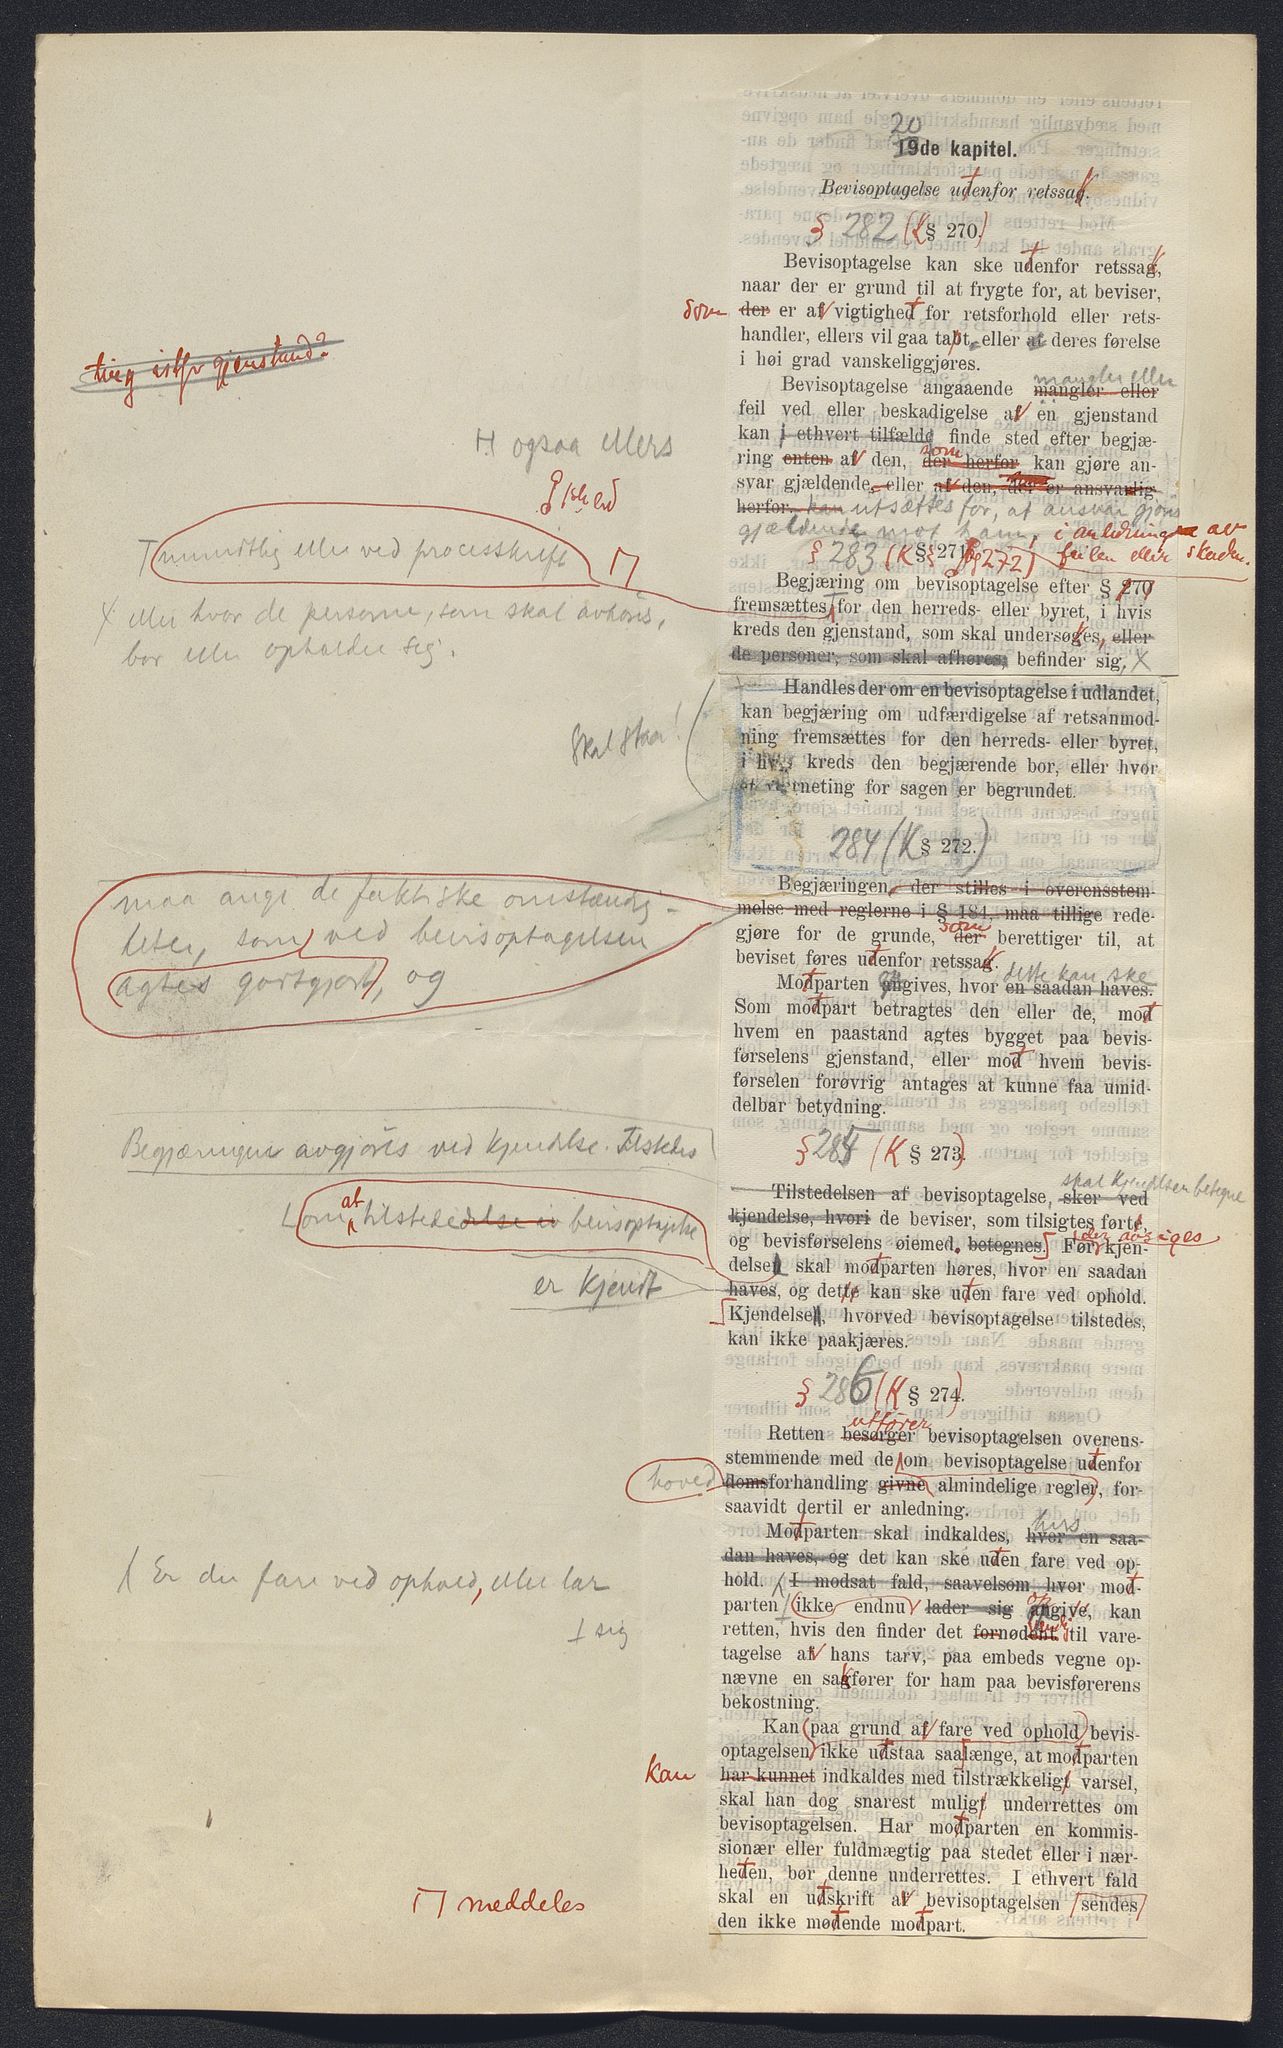 20
19de kapitel.
Bevisoptagelse udenfor retssag.
§ 282 (K § 270.)
Bevisoptagelse kan ske udenfor retssag,
naar der er grund til at frygte for, at beviser,
som
der er af vigtighed for retsforhold eller rets-
handler, ellers vil gaa tapt, eller at deres førelse
i høi grad vanskeliggjøres.
ting istfr gjenstand?
mangler eller
Bevisoptagelse angaaende mangler eller
feil ved eller beskadigelse af en gjenstand
H ogsaa ellers
kan i ethvert tilfælde finde sted efter begjæ-
som
ring enten af den, der herfor kan gjøre an-
svar gjældende, eller af den, der er ansvarlig
herfor. kan utsættes for, at ansvar gjøres
gjældende mot ham, i anledning av
feilen eller skaden.
§ 283 (K §§ 271 og 272)
T mundtlig eller ved processkrift
Begjæring om bevisoptagelse efter § 270
fremsættes for den herreds- eller byret, i hvis
X eller hvor de personer, som skal avhøres,
bor eller opholder sig.
kreds den gjenstand, som skal undersøkes, eller
de personer, som skal afhøres, befinder sig, X
Skal staa!
Handles der om en bevisoptagelse i udlandet,
kan begjæring om udfærdigelse af retsanmod-
ning fremsættes for den herreds- eller byret,
i hvis kreds den begjærende bor, eller hvor
et verneting for sagen er begrundet.
284 (K § 272.)
maa angi de faktiske omstændig-
heter, som ved bevisoptagelsen
agtes godtgjort, og
Begjæringen, der stilles i overensstem-
melse med reglerne i § 184, maa tillige rede-
som
gjøre for de grunde, der berettiger til, at
beviset føres udenfor retssag.
dette kan ske
Modparten angives, hvor en saadan haves.
Som modpart betragtes den eller de, mod
hvem en paastand agtes bygget paa bevis-
førselens gjenstand, eller mod hvem bevis-
førselen forøvrig antages at kunne faa umid-
delbar betydning.
§ 285 (K § 273.)
Begjæringen avgjøres ved kjendelse. Tilstedes
skal kjendelsen betegne
Tilstedelsen af bevisoptagelse, sker ved
kjendelse, hvori de beviser, som tilsigtes ført,
L om at tilstededelse av bevisoptagelse
der avsiges
og bevisførselens øiemed. betegnes. Før kjen-
delsen skal modparten høres, hvor en saadan
er kjendt
haves, og dette kan ske uden fare ved ophold.
Kjendelsen, hvorved bevisoptagelse tilstedes,
kan ikke paakjæres.
§ 286 (K § 274.)
utfører
Retten besørger bevisoptagelsen overens-
stemmende med de om bevisoptagelse udenfor
hoved
domsforhandling givne almindelige regler, for-
saavidt dertil er anledning.
hvis
Modparten skal indkaldes, hvor en saa-
dan haves, og det kan ske uden fare ved op-
( Er der fare ved ophold, eller lar
hold. I modsat fald, saavelsom hvor mod-
⊥ sig
parten ikke endnu lader sig angive, kan
retten, hvis den finder det fornødent til vare-
tagelse af hans tarv, paa embeds vegne op-
nævne en sagfører for ham paa bevisførerens
bekostning.
Kan paa grund af fare ved ophold bevis-
optagelsen ikke udstaa saalænge, at modparten
kan
har kunnet indkaldes med tilstrækkeligt varsel,
skal han dog snarest muligt underrettes om
bevisoptagelsen. Har modparten en kommis-
sionær eller fuldmægtig paa stedet eller i nær-
heden, bør denne underrettes. I ethvert fald
skal en udskrift af bevisoptagelsen sendes
meddeles
den ikke mødende modpart.